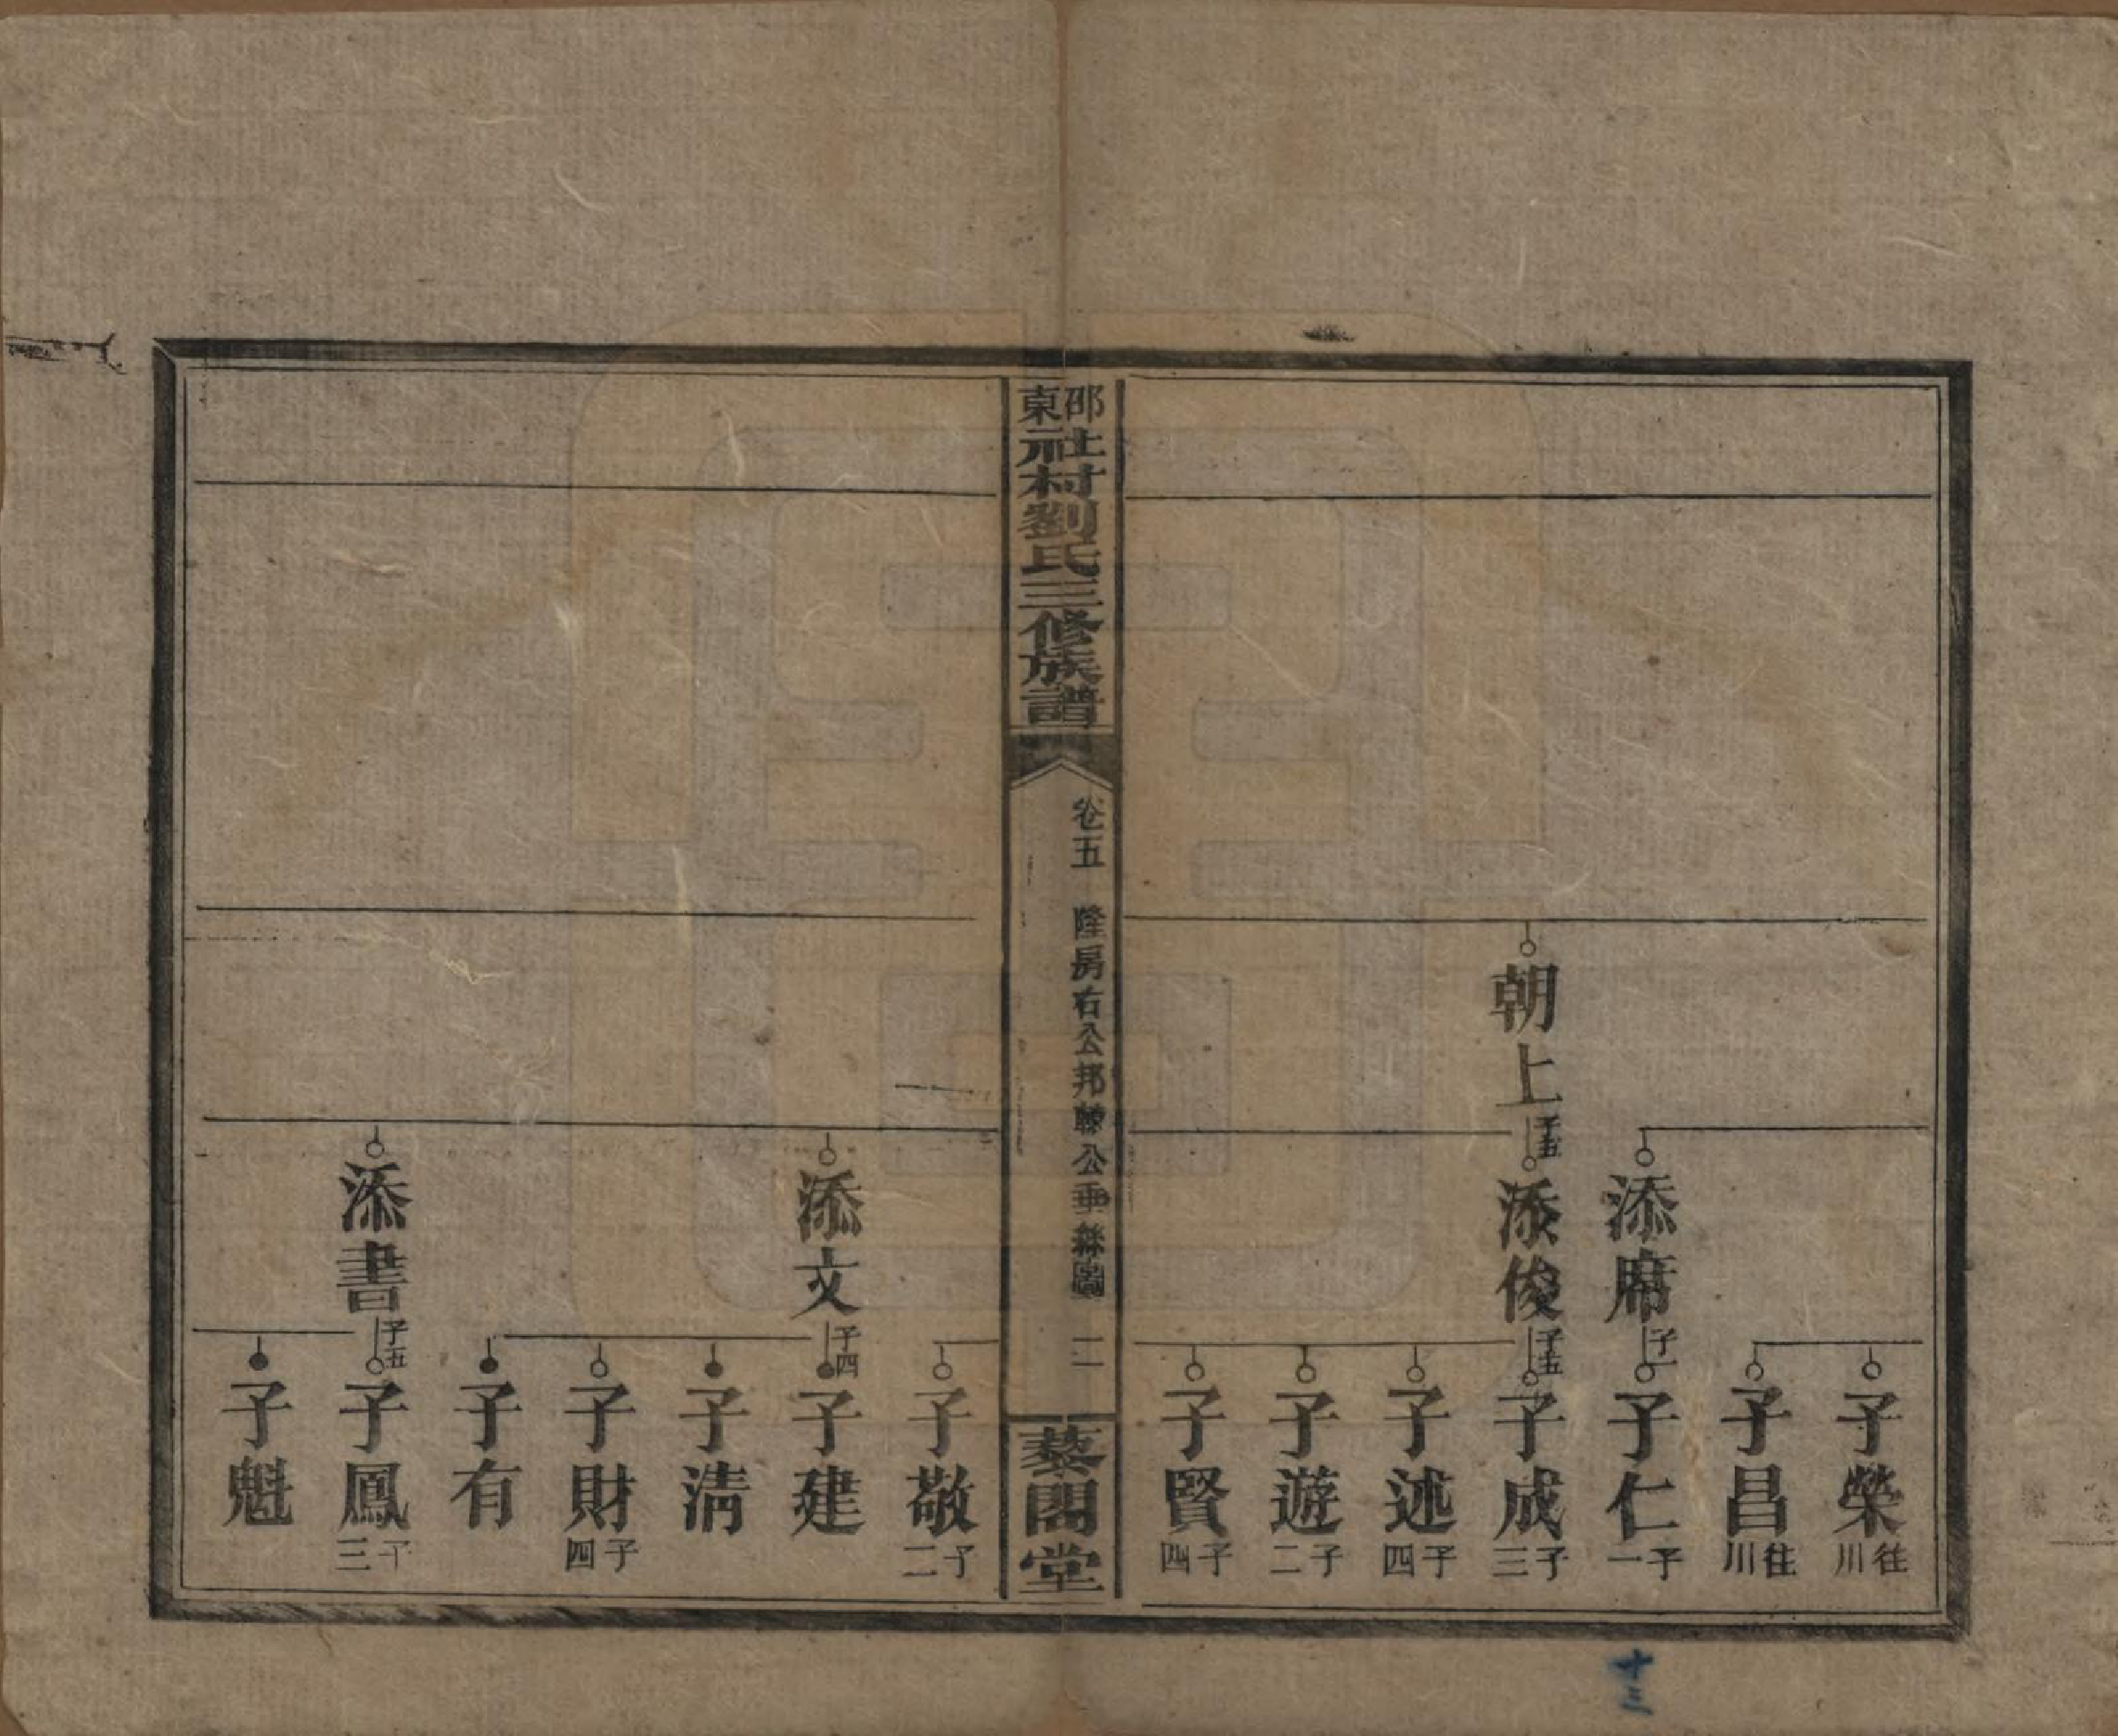 子榮 往川
子昌 往川
添席 子一
子仁 子一
朝上 子五
添俊 子五
子成 子三
子述 子四
子遊 子二
子賢 子四
邵東社村劉氏三修族譜
卷五 隆房右公邦 公垂絲圖 二
藜閣堂
子敬 子二
添文 子四
子建
子清
子財 子四
子有
添書 子五
子鳳 子三
子魁
十三